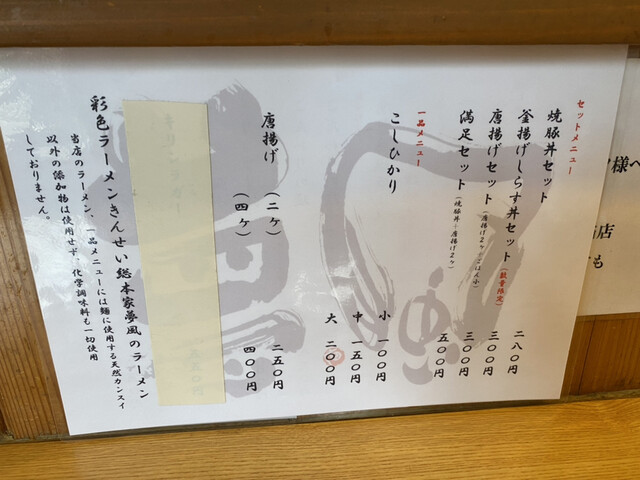 様へ
店
も
セットメニュー
焼豚丼セット 二八〇円
釜揚げしらす丼セット(数量限定) 三〇〇円
唐揚げセット(唐揚げ2ヶ・ごはん小) 三〇〇円
満足セット(焼豚丼・唐揚げ2ヶ) 五〇〇円
一品メニュー
こしひかり 小 一〇〇円
中 一五〇円
大 二〇〇円
唐揚げ (二ヶ) 二五〇円
(四ヶ) 四〇〇円
彩色ラーメンきんせい総本家夢風のラーメン
当店のラーメン、一品メニューには麺に使用する天然カンスイ
以外の添加物は使用せず、化学調味料も一切使用
しておりません。